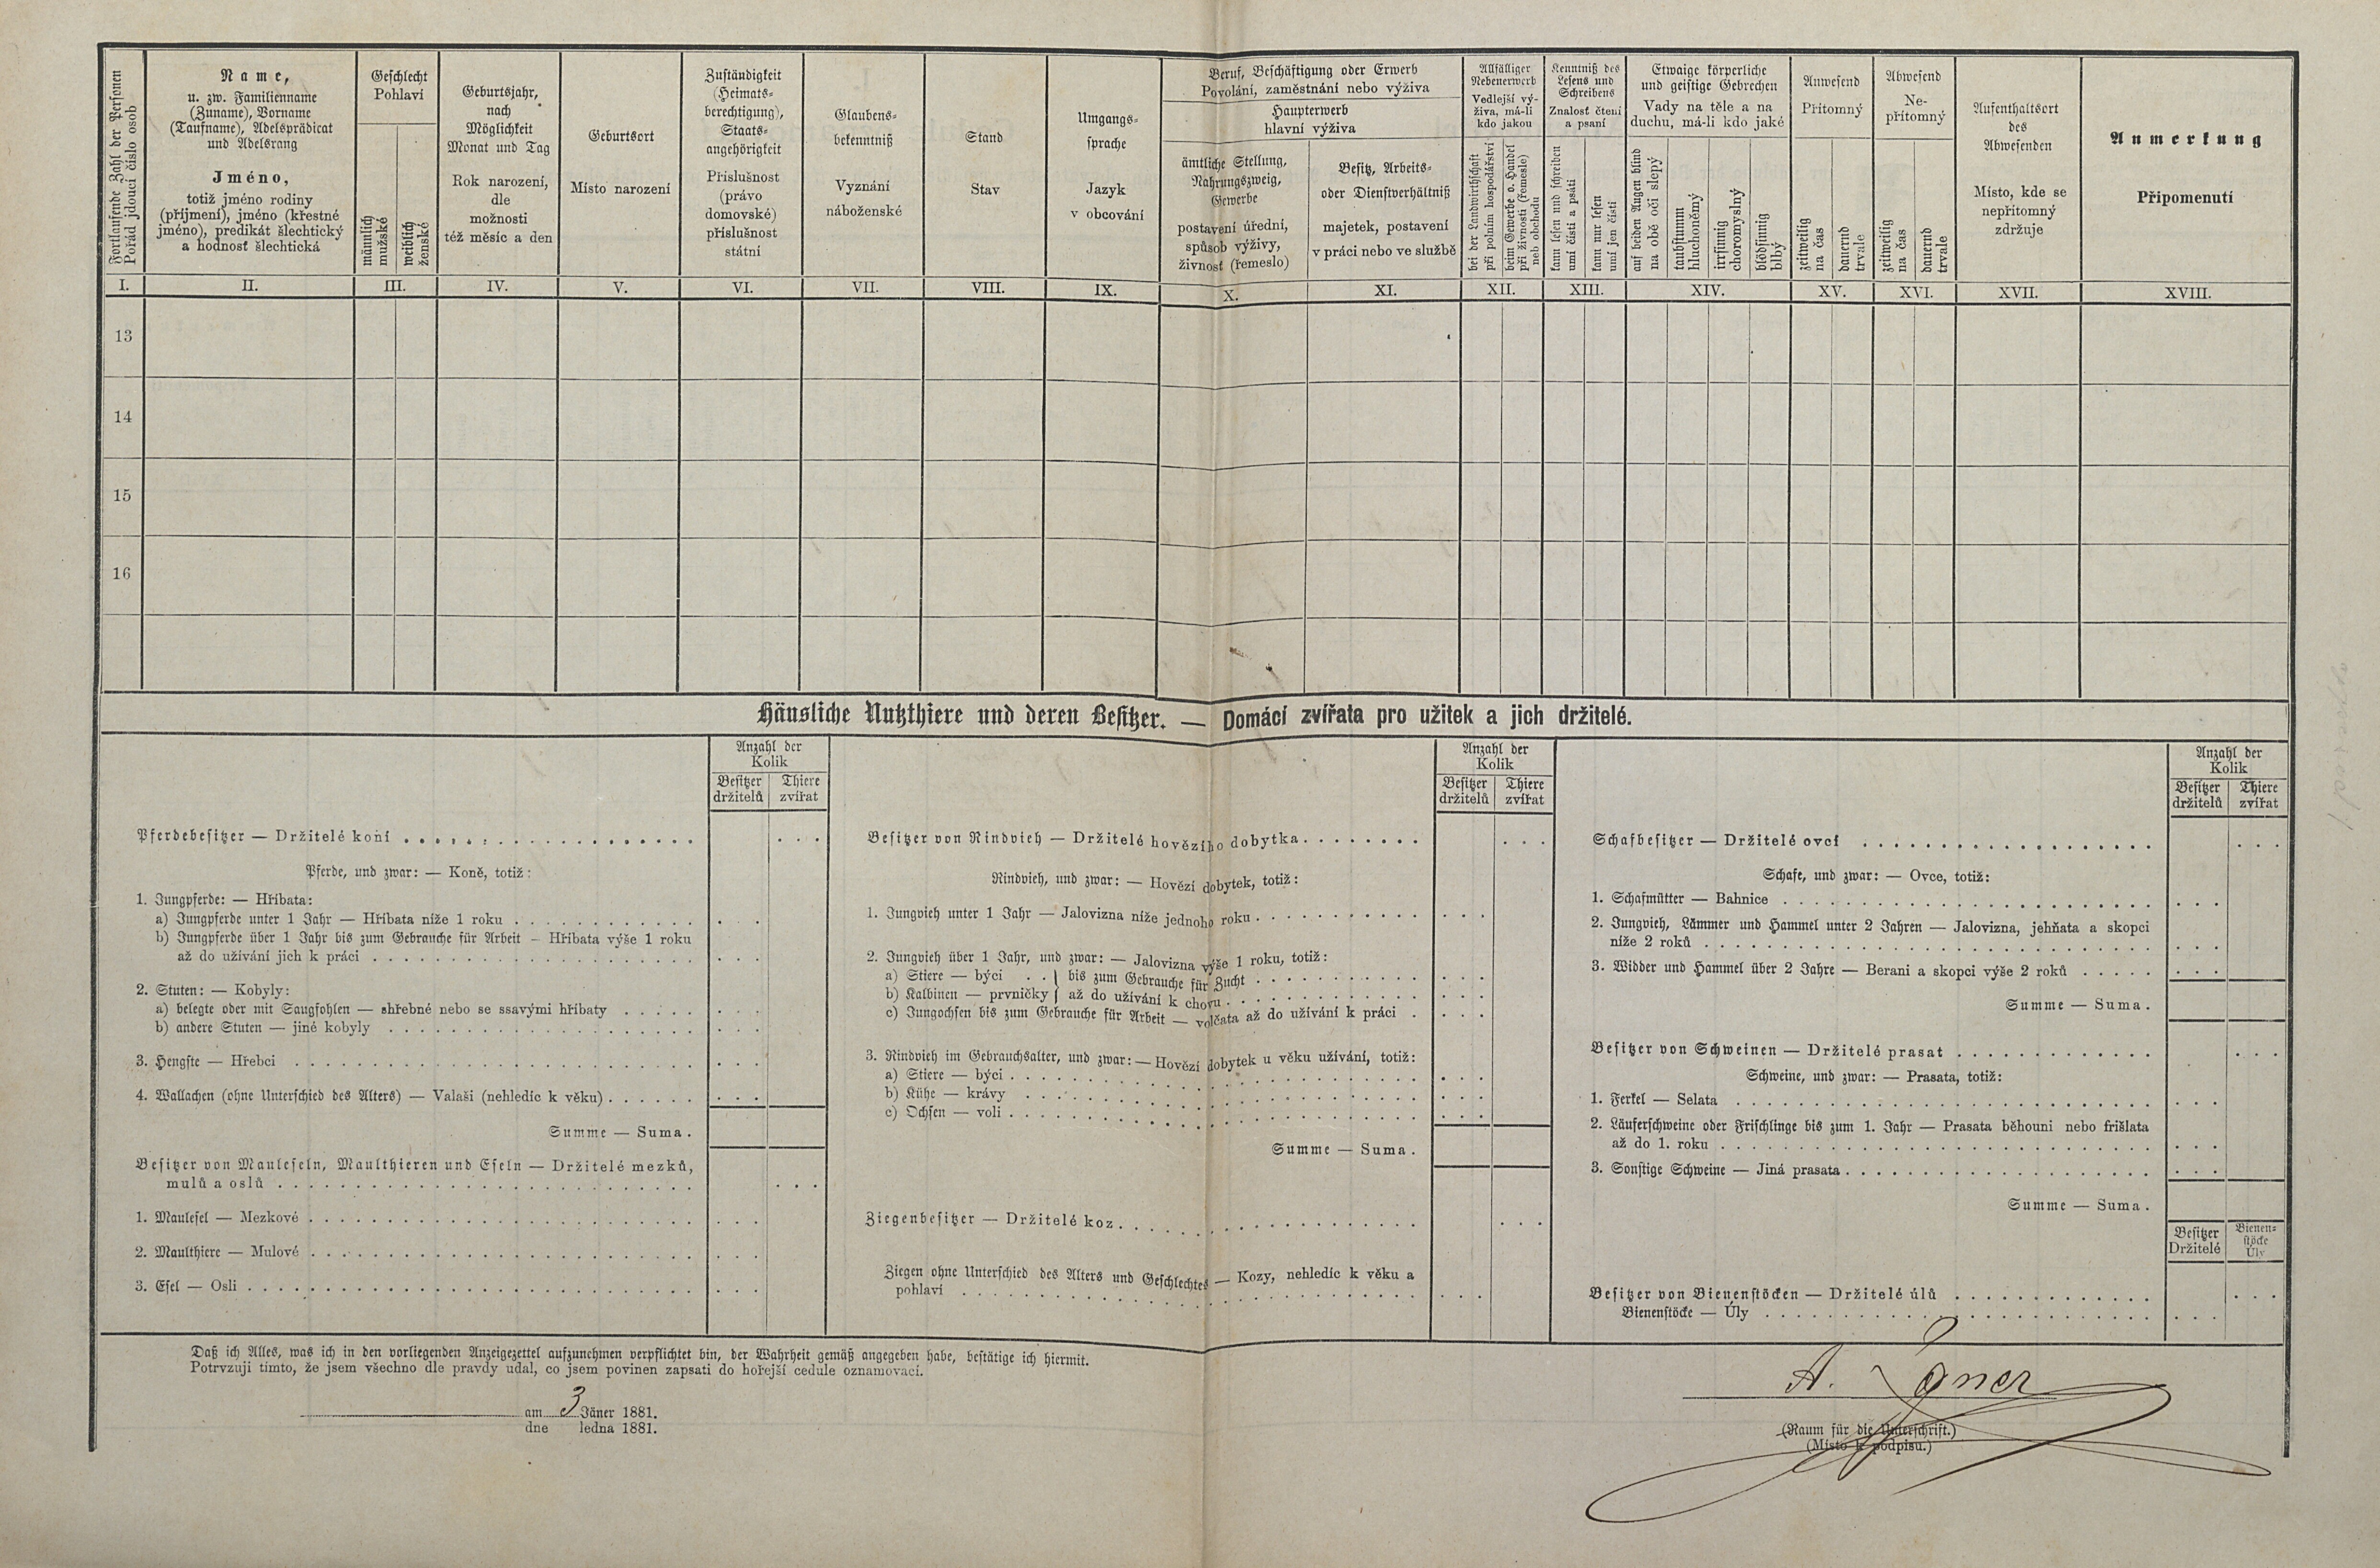 Fortlaufende Zahl der Personen
Pořád jdoucí číslo osob
Name,
u. zw. Familienname
(Zuname), Vorname
(Taufname), Adelsprädicat
und Adelsrang
Jméno,
totiž jméno rodiny
(příjmení), jméno (křestné
jméno), predikát šlechtický
a hodnosť šlechtická
Geschlecht
Pohlaví
männlich
mužské
weiblich
ženské
Geburtsjahr,
nach
Möglichkeit
Monat und Tag
Rok narození,
dle
možnosti
též měsíc a den
Geburtsort
Místo narození
Zuständigkeit
(Heimats-
berechtigung),
Staats-
angehörigkeit
Příslušnost
(právo
domovské)
příslušnost
státní
Glaubens-
bekenntniß
Vyznání
náboženské
Stand
Stav
Umgangs-
sprache
Jazyk
v obcování
Beruf, Beschäftigung oder Erwerb
Povolání, zaměstnání nebo výživa
Haupterwerb
hlavní výživa
ämtliche Stellung,
Nahrungszweig,
Gewerbe
postavení úřední,
spůsob výživy,
živnosť (řemeslo)
Besitz, Arbeits-
oder Dienstverhältniß
majetek, postavení
v práci nebo ve službě
Allfälliger
Nebenerwerb
Vedlejší vý-
živa, má-li
kdo jakou
bei der Landwirthschaft
při polním hospodářství
beim Gewerbe o. Handel
při živnosti (řemesle)
neb obchodu
Kenntniß des
Lesens und
Schreibens
Znalosť čtení
a psaní
kann lesen und schreiben
umí čísti a psáti
kann nur lesen
umí jen čísti
Etwaige körperliche
und geistige Gebrechen
Vady na těle a na
duchu, má-li kdo jaké
auf beiden Augen blind
na obě oči slepý
taubstumm
hluchoněmý
irrsinnig
choromyslný
blödsinnig
blbý
Anwesend
Přítomný
zeitweilig
na čas
dauernd
trvale
Abwesend
Ne-
přítomný
zeitweilig
na čas
dauernd
trvale
Aufenthaltsort
des
Abwesenden
Místo, kde se
nepřítomný
zdržuje
Anmerkung
Připomenutí
I. II. III. IV. V. VI. VII. VIII. IX. X. XI. XII. XIII. XIV. XV. XVI. XVII. XVIII.
13
14
15
16
Häusliche Nutzthiere und deren Besitzer. — Domácí zvířata pro užitek a jich držitelé.
Anzahl der
Kolik
Besitzer Thiere
držitelů zvířat
Pferdebesitzer — Držitelé koní . . . . . . . . . . . . . . . . . . .
Pferde, und zwar: — Koně, totiž:
1. Jungpferde: — Hříbata:
a) Jungpferde unter 1 Jahr — Hříbata níže 1 roku . . . . . . . . . . . .
b) Jungpferde über 1 Jahr bis zum Gebrauche für Arbeit — Hříbata výše 1 roku
až do užívání jich k práci . . . . . . . . . . . . . . . . . . . . .
2. Stuten: — Kobyly:
a) belegte oder mit Saugfohlen — shřebné nebo se ssavými hříbaty . . . . .
b) andere Stuten — jiné kobyly . . . . . . . . . . . . . . . . . . . .
3. Hengste — Hřebci . . . . . . . . . . . . . . . . . . . . . . . . . .
4. Wallachen (ohne Unterschied des Alters) — Valaši (nehledíc k věku) . . . . . .
Summe — Suma .
Besitzer von Mauleseln, Maulthieren und Eseln — Držitelé mezků,
mulů a oslů . . . . . . . . . . . . . . . . . . . . . . . . . . .
1. Maulesel — Mezkové . . . . . . . . . . . . . . . . . . . . . . . . .
2. Maulthiere — Mulové . . . . . . . . . . . . . . . . . . . . . . . . .
3. Esel — Osli . . . . . . . . . . . . . . . . . . . . . . . . . . . . .
Anzahl der
Kolik
Besitzer Thiere
držitelů zvířat
Besitzer von Rindvieh — Držitelé hovězího dobytka . . . . . . . .
Rindvieh, und zwar: — Hovězí dobytek, totiž:
1. Jungvieh unter 1 Jahr — Jalovizna níže jednoho roku . . . . . . . . . . .
2. Jungvieh über 1 Jahr, und zwar: — Jalovizna výše 1 roku, totiž:
a) Stiere — býci . . } bis zum Gebrauche für Zucht . . . . . . . . . . .
b) Kalbinen — prvničky } až do užívání k chovu . . . . . . . . . . . . .
c) Jungochsen bis zum Gebrauche für Arbeit — volčata až do užívání k práci .
3. Rindvieh im Gebrauchsalter, und zwar: — Hovězí dobytek u věku užívání, totiž:
a) Stiere — býci . . . . . . . . . . . . . . . . . . . . . . . . . .
b) Kühe — krávy . . . . . . . . . . . . . . . . . . . . . . . . .
c) Ochsen — voli . . . . . . . . . . . . . . . . . . . . . . . . . .
Summe — Suma .
Ziegenbesitzer — Držitelé koz . . . . . . . . . . . . . . . . . . .
Ziegen ohne Unterschied des Alters und Geschlechtes — Kozy, nehledíc k věku a
pohlaví . . . . . . . . . . . . . . . . . . . . . . . . . . . . .
Anzahl der
Kolik
Besitzer Thiere
držitelů zvířat
Schafbesitzer — Držitelé ovcí . . . . . . . . . . . . . . . . . . .
Schafe, und zwar: — Ovce, totiž:
1. Schafmütter — Bahnice . . . . . . . . . . . . . . . . . . . . . . . .
2. Jungvieh, Lämmer und Hammel unter 2 Jahren — Jalovizna, jehňata a skopci
níže 2 roků . . . . . . . . . . . . . . . . . . . . . . . . . . . . .
3. Widder und Hammel über 2 Jahre — Berani a skopci výše 2 roků . . . . .
Summe — Suma .
Besitzer von Schweinen — Držitelé prasat . . . . . . . . . . . . .
Schweine, und zwar: — Prasata, totiž:
1. Ferkel — Selata . . . . . . . . . . . . . . . . . . . . . . . . . . .
2. Läuferschweine oder Frischlinge bis zum 1. Jahr — Prasata běhouni nebo frišlata
až do 1. roku . . . . . . . . . . . . . . . . . . . . . . . . . . . .
3. Sonstige Schweine — Jiná prasata . . . . . . . . . . . . . . . . . . . .
Summe — Suma .
Besitzer
Držitelé
Bienen-
stöcke
Úly
Besitzer von Bienenstöcken — Držitelé úlů . . . . . . . . . . . . .
Bienenstöcke — Úly . . . . . . . . . . . . . . . . . . . . . . . . .
Daß ich Alles, was ich in den vorliegenden Anzeigezettel aufzunehmen verpflichtet bin, der Wahrheit gemäß angegeben habe, bestätige ich hiermit.
Potvrzuji tímto, že jsem všechno dle pravdy udal, co jsem povinen zapsati do hořejší cedule oznamovací.
am 3 Jäner 1881.
dne ledna 1881.
A.
(Raum für die Unterschrift.)
(Místo k podpisu.)